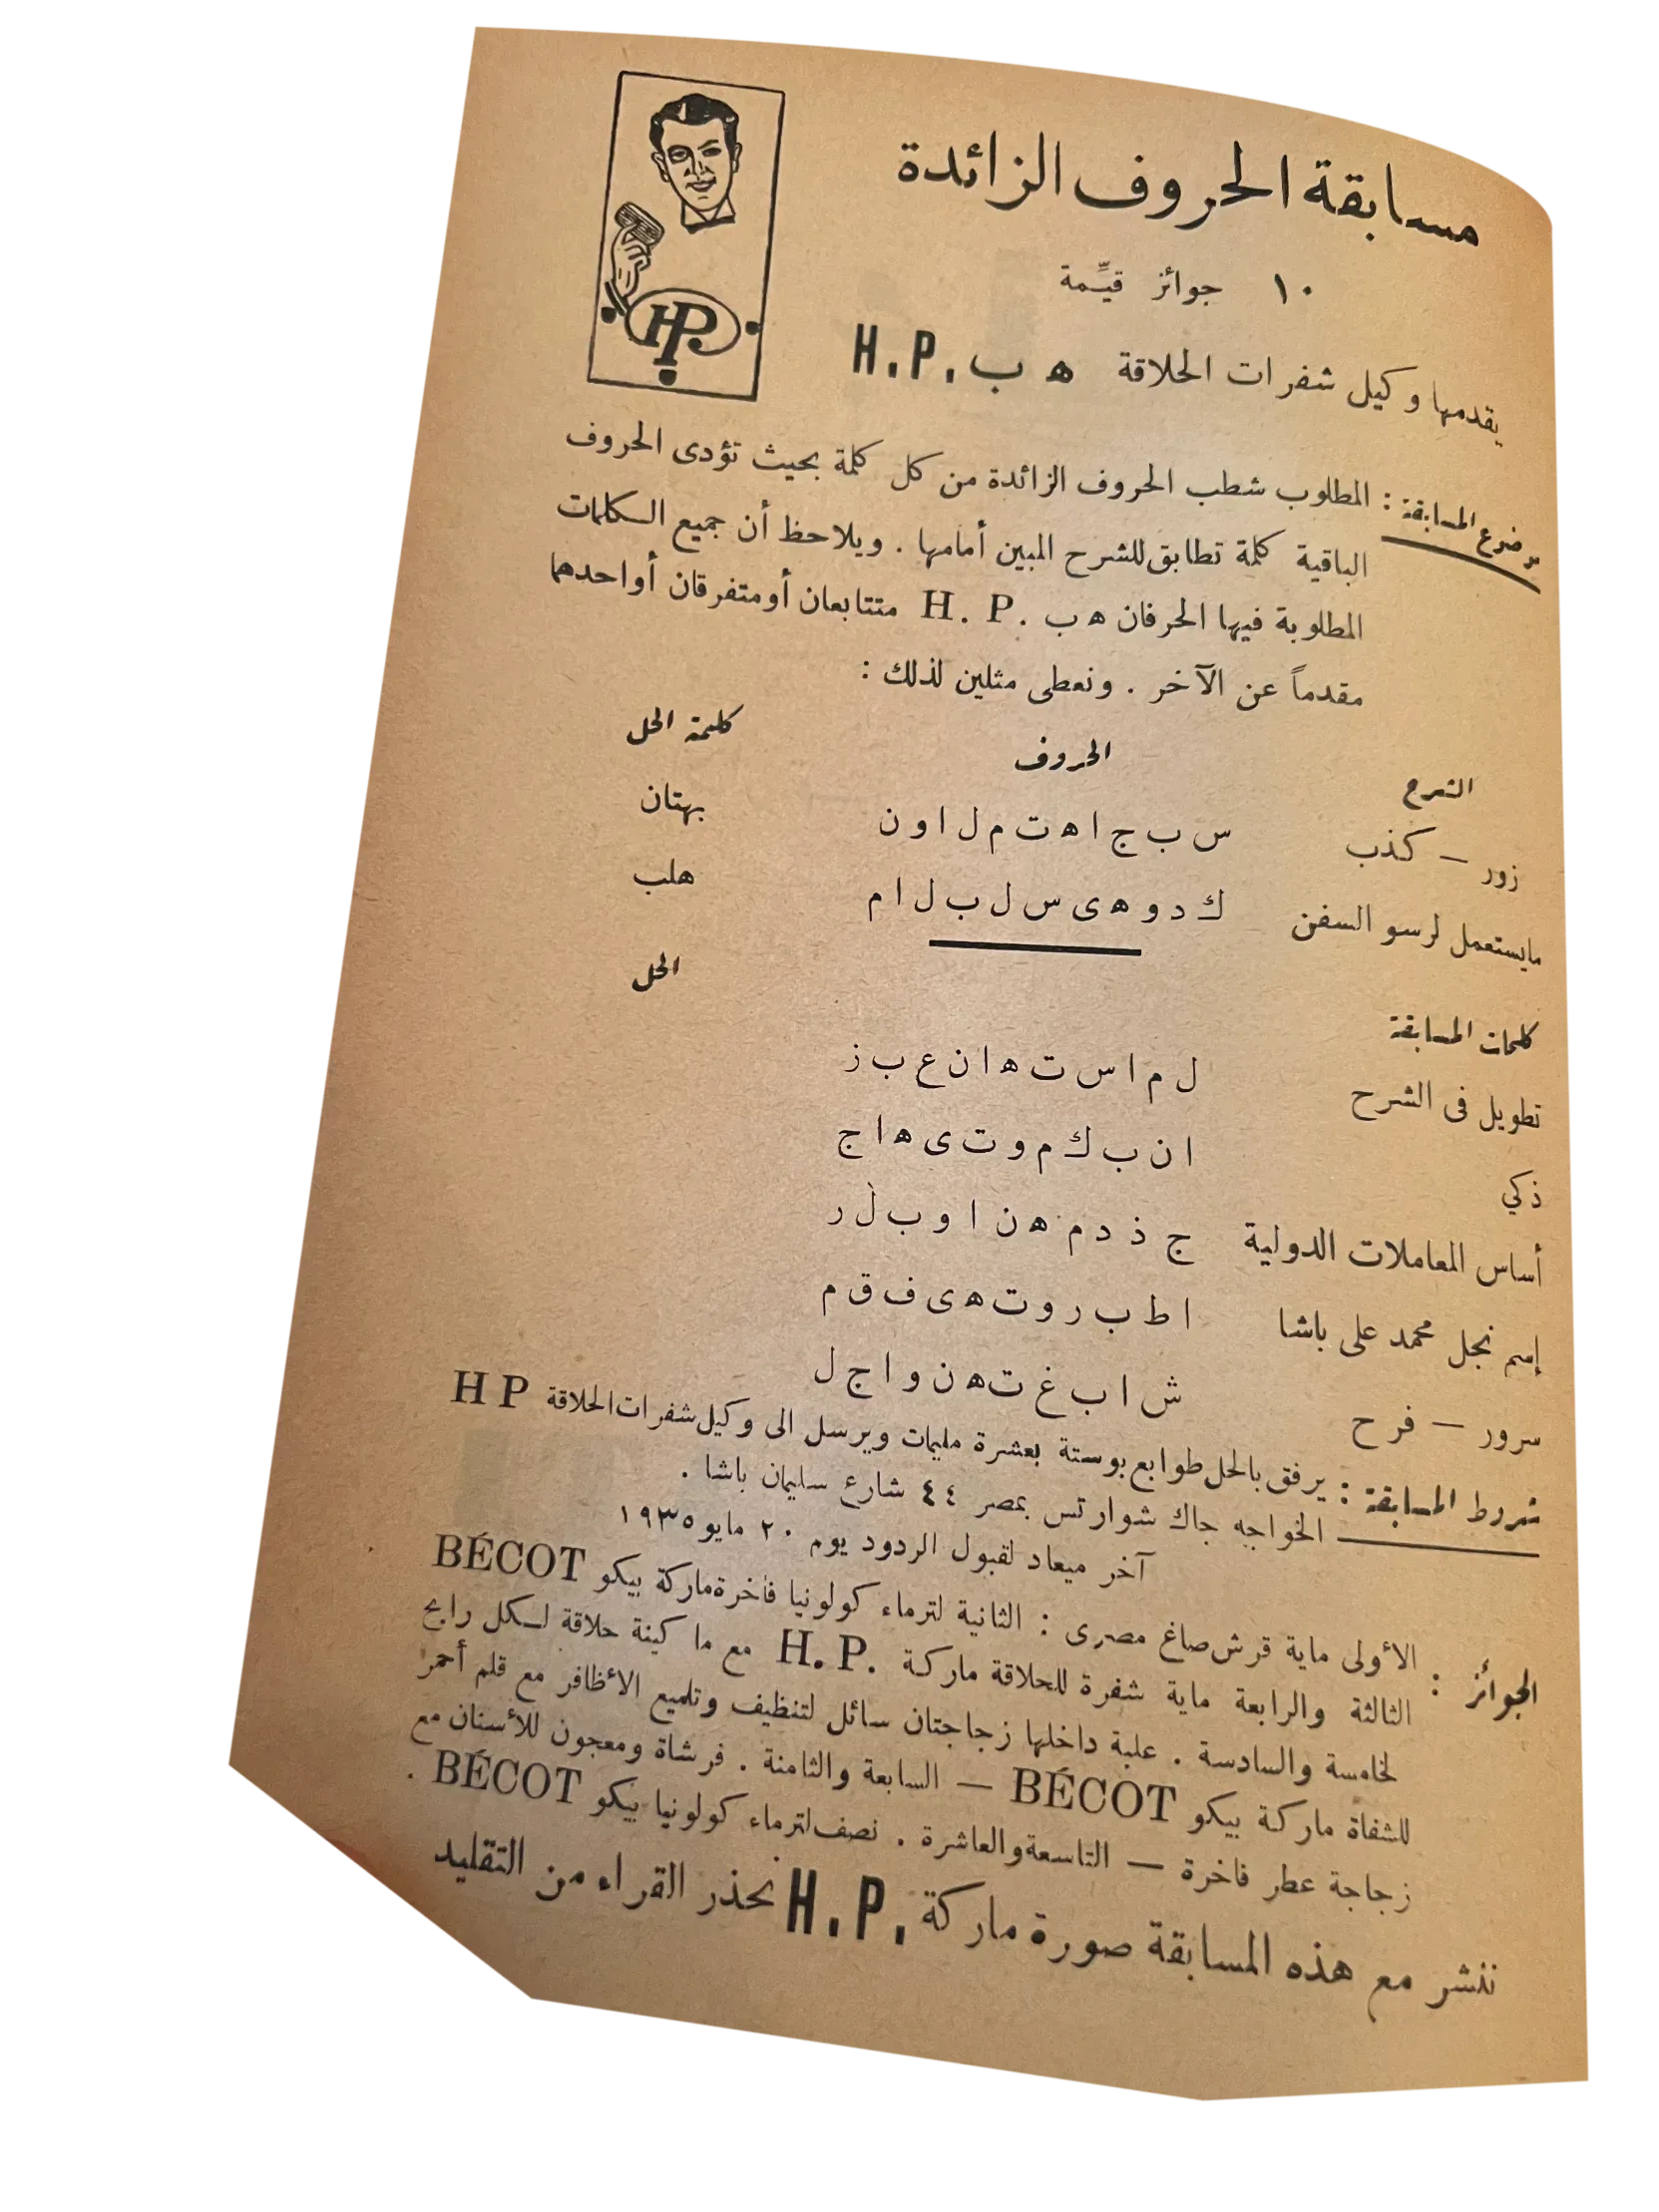 مسابقة الحروف الزائدة
١٠ جوائز قيِّمة
يقدمها وكيل شفرات الحلاقة ه ب H.P.
HP
موضوع المسابقة : المطلوب شطب الحروف الزائدة من كل كلمة بحيث تؤدى الحروف
الباقية كلمة تطابق للشرح المبين أمامها . ويلاحظ أن جميع الكلمات
المطلوبة فيها الحرفان ه ب H. P. متتابعان أو متفرقان أو احدهما
مقدماً عن الآخر . ونعطى مثلين لذلك :
الشرح الحروف كلمة الحل
زور — كذب س ب ج ا ه ت م ل ا و ن بهتان
مايستعمل لرسو السفن ك د و ه ى س ل ب ل ا م هلب
كلمات المسابقة الحل
تطويل فى الشرح ل م ا س ت ه ا ن ع ب ز
ذكي ا ن ب ك م و ت ى ه ا ج
أساس المعاملات الدولية ج ذ د م ه ن ا و ب ل ر
إسم نجل محمد على باشا ا ط ب ر و ت ه ى ف ق م
سرور — فرح ش ا ب غ ت ه ن و ا ج ل
شروط المسابقة : يرفق بالحل طوابع بوستة بعشرة مليمات ويرسل الى وكيل شفرات الحلاقة H P
الخواجه جاك شوارتس بمصر ٤٤ شارع سليمان باشا .
آخر ميعاد لقبول الردود يوم ٢٠ مايو ١٩٣٥
الجوائز : الأولى ماية قرش صاغ مصرى : الثانية لترماء كولونيا فاخرة ماركة بيكو BÉCOT
الثالثة والرابعة ماية شفرة للحلاقة ماركة H.P. مع ما كينة حلاقة لكل رابح
لخامسة والسادسة . علبة داخلها زجاجتان سائل لتنظيف وتلميع الأظافر مع قلم أحمر
للشفاة ماركة بيكو BÉCOT — السابعة والثامنة . فرشاة ومعجون للأسنان مع
زجاجة عطر فاخرة — التاسعة والعاشرة . نصف لترماء كولونيا بيكو BÉCOT .
ننشر مع هذه المسابقة صورة ماركة H.P. نحذر القراء من التقليد